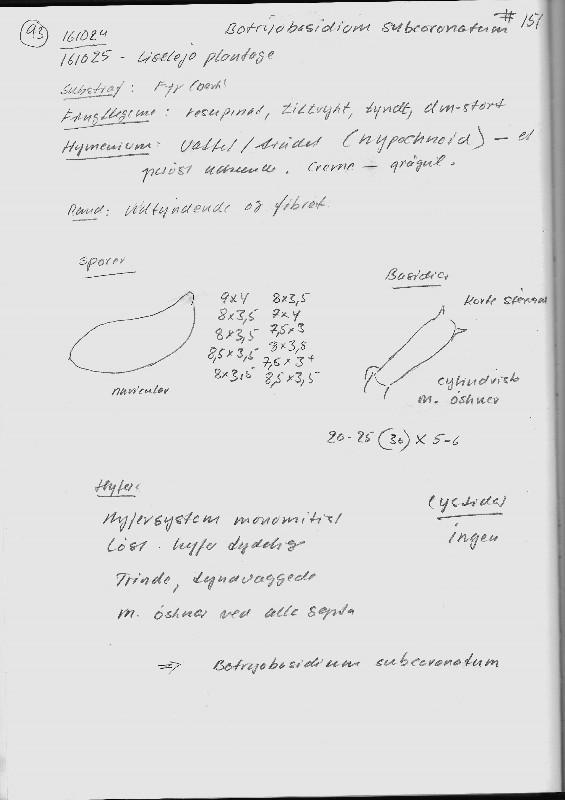 93 161024 Botryobasidium subcoronatum # 151
161025 - Liseleje plantage
Substrat: Fyr (bark)
Frugtlegeme: resupinat, tiltrykt, tyndt, dm-stort
Hymenium: Vattet / trådet (hypochnoid) - et
porøst udseende. Creme - grågul.
Rand: Udtyndende og fibret.
Sporer
9x4 8x3,5
8x3,5 7x4
8x3,5 7,5x3
8,5x3,5 8x3,5
7,5x3+
8x3,5 8,5x3,5
naviculær
Basidier
Korte sterigmer
cylindrisk
m. øskner
20-25 (30) x 5-6
Hyfer:
Hyfersystem monomitisk
Løst. hyfer tydelige
Trinde, tyndvæggede
m. øskner ved alle septa
Cystider
ingen
=> Botryobasidium subcoronatum